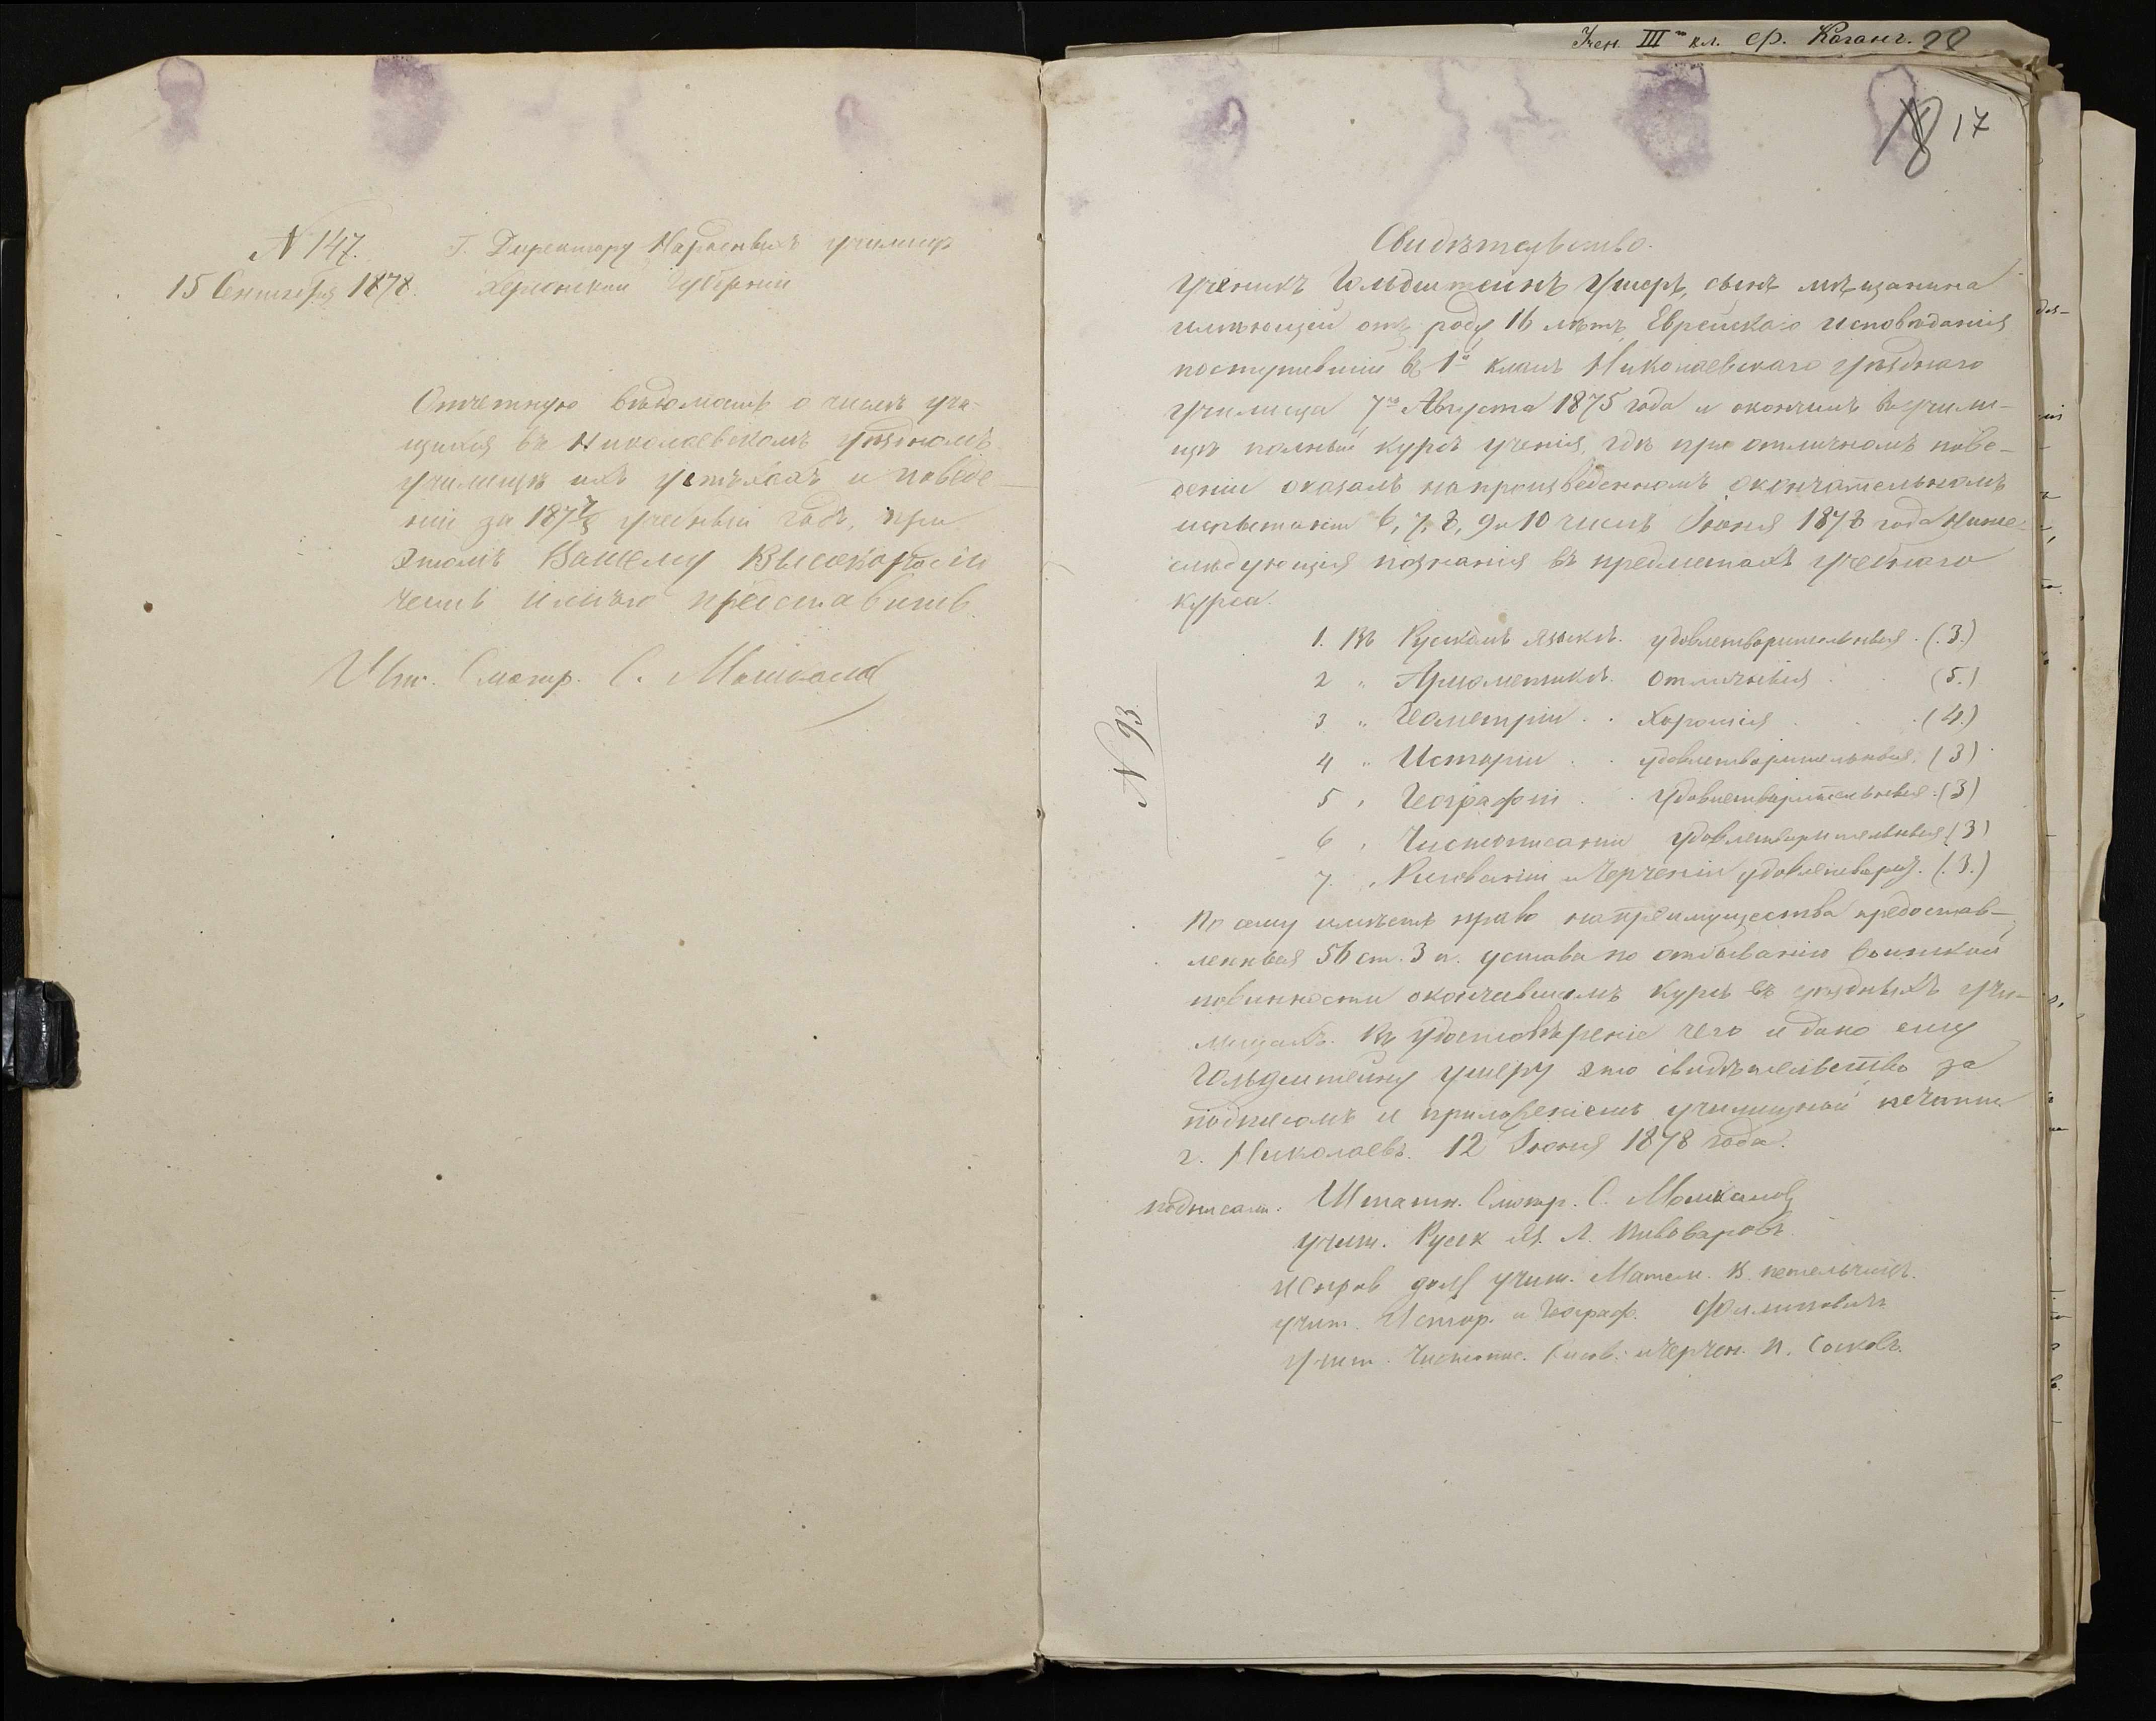 № 147.
15 Сентября 1878.
Г. Директору Народныхъ училищъ
Херсонской Губерніи
Отчетную вѣдомость о числѣ уча-
щихся въ Николаевскомъ уѣздномъ
училищѣ ихъ успѣхахъ и поведе-
ніи за 187 7/8 учебный годъ, при
этомъ Вашему Высокородію
честь имѣю представить.
Шт. Смотр. С.
Учен. III го кл. Ср. Каганъ. 20
18 17
Свидѣтельство.
Ученикъ Гольдштейнъ Ушеръ, сынъ мѣщанина
имѣющій отъ роду 16 лѣтъ, Еврейскаго исповѣданія
поступившій въ 1й классъ Николаевскаго уѣзднаго
училища 7го Августа 1875 года и окончилъ въ учили-
щѣ полный курсъ ученія, гдѣ при отличномъ пове-
деніи оказалъ на произведенномъ окончательномъ
испытаніи 6, 7, 8, 9 и 10 чиселъ Іюня 1878 года ниже-
слѣдующія познанія въ предметахъ учебнаго
курса.
1. Въ Рускомъ языкѣ. удовлетворительныя. (3.)
2 " Ариѳметикѣ. Отличныя (5.)
3 " Геометріи . . Хорошія . . (4.)
4 " Исторіи . . удовлетворительныя. (3)
5 " Географіи . . Удовлетворительныя. (3)
6 " Чистописаніи Удовлетворительныя (3)
7. " Рисованіи и Черченіи удовлетворит. (3.)
№ 93.
По сему имѣетъ право на преимущества предостав-
ленныя 56 ст. 3 п. устава по отбыванію воинской
повинности окончившимъ курсъ въ уѣздныхъ учи-
лищахъ. Въ удостовѣреніе чего и дано ему
Гольдштейну Ушеру это свидѣтельство за
подписомъ и приложеніемъ училищной печати
г. Николаевъ. 12 Іюня 1878 года.
подписали: Штатн. Смотр. С.
учит. Руск яз. Л. Пивоваровъ
исправ долж учит. Матем. В.
учит. Истор. и Географ. Филиповичъ
Учит. Чистопис. Рисов. и Черчен. П.